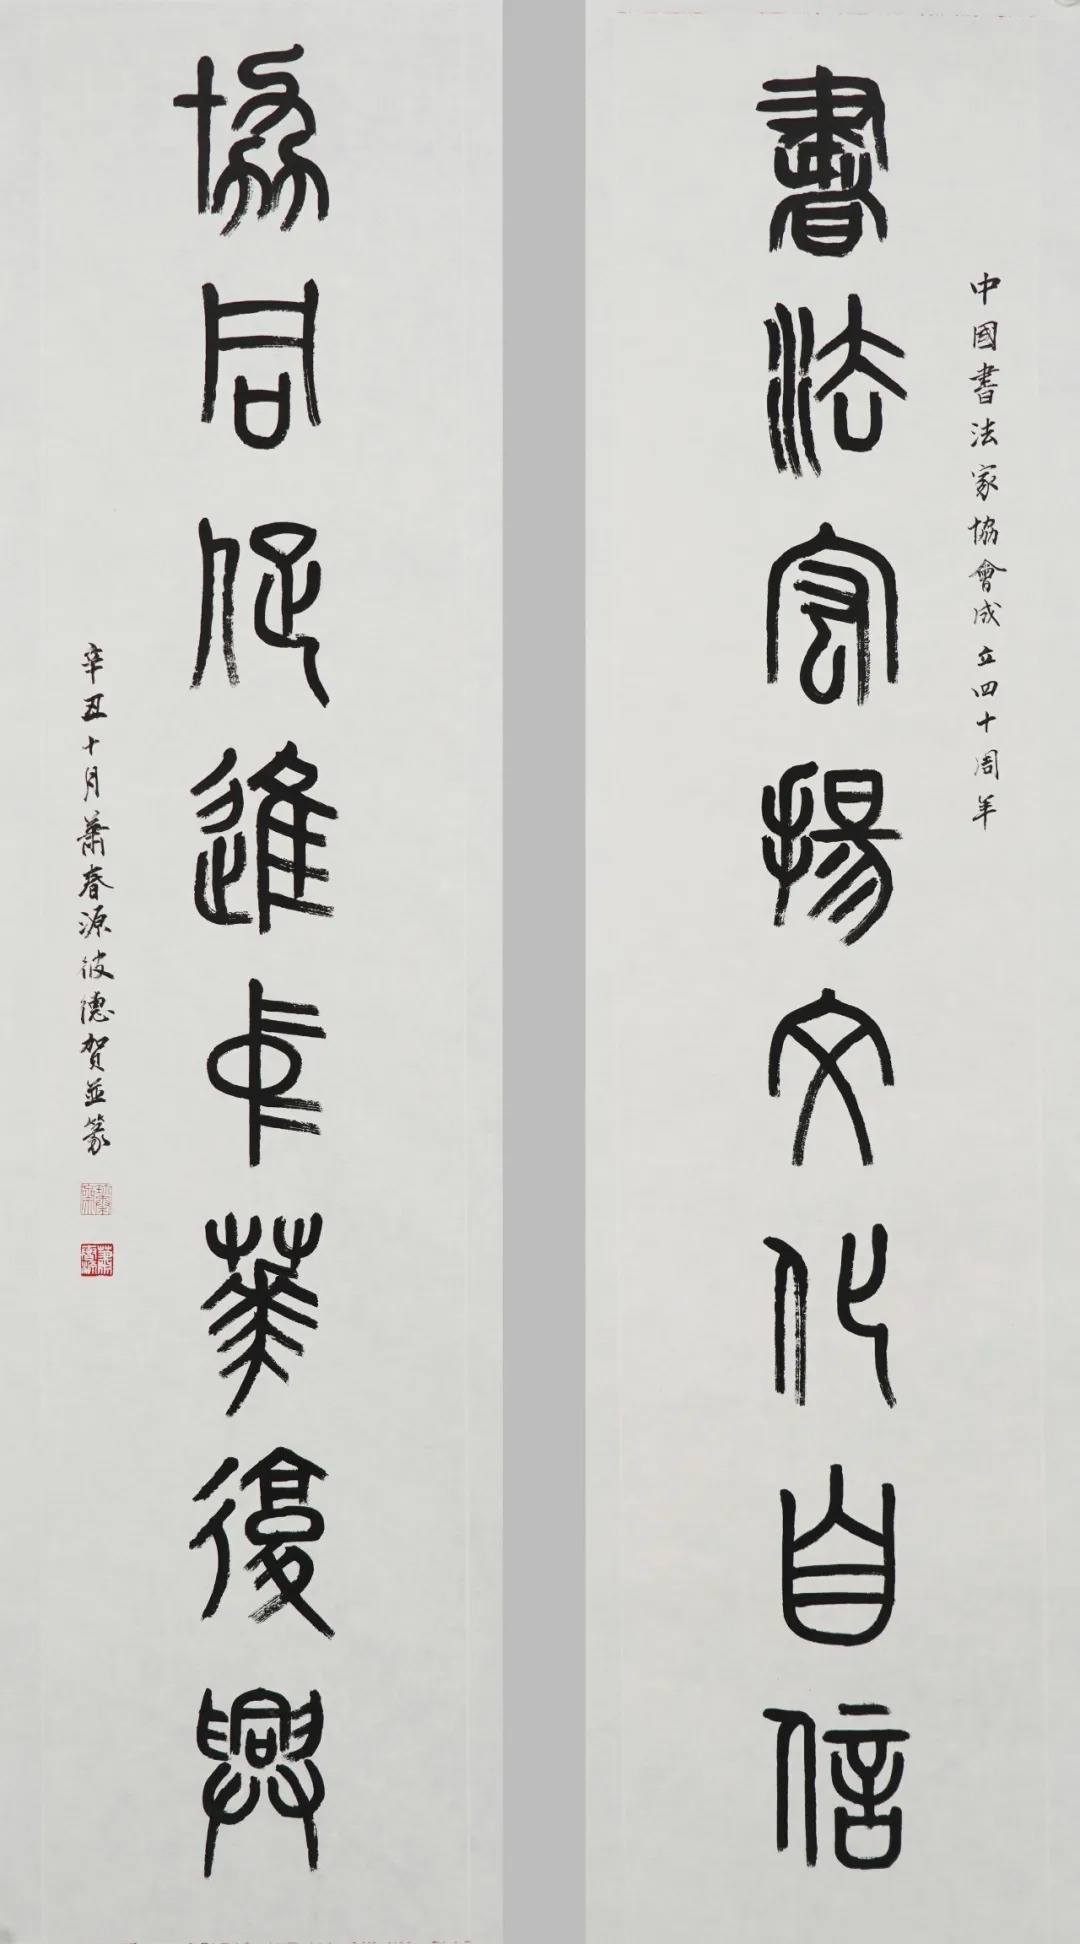 中國書法家協會成立四十周年
書法宏揚文化自信
協同促進中華復興
辛丑十月蕭春源彼德賀並篆